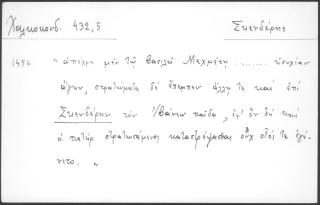 Χαλκοκονδ. 432,5. Σκενδέρης
1456 " ἀπέχρη μὲν τῷ βασιλεῖ Μεχμέτῃ ........ ἡσυχίαν
ἄγειν, στρατεύματα δὲ ἔπεμπεν ἄλλῃ τε καὶ ἐπὶ
Σκενδέρην τὸν Ἰβάνεω παῖδα, ἐφ' ὃν δὴ καὶ
ὁ πατὴρ στρατευσάμενος καταστρέψασθαι οὐχ οἷός τε ἐγέ-
νετο. "